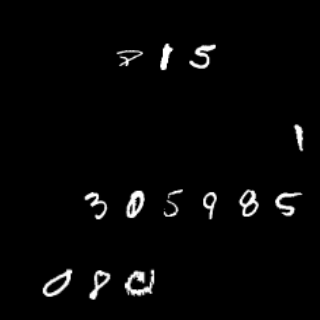 815
1
305985
080